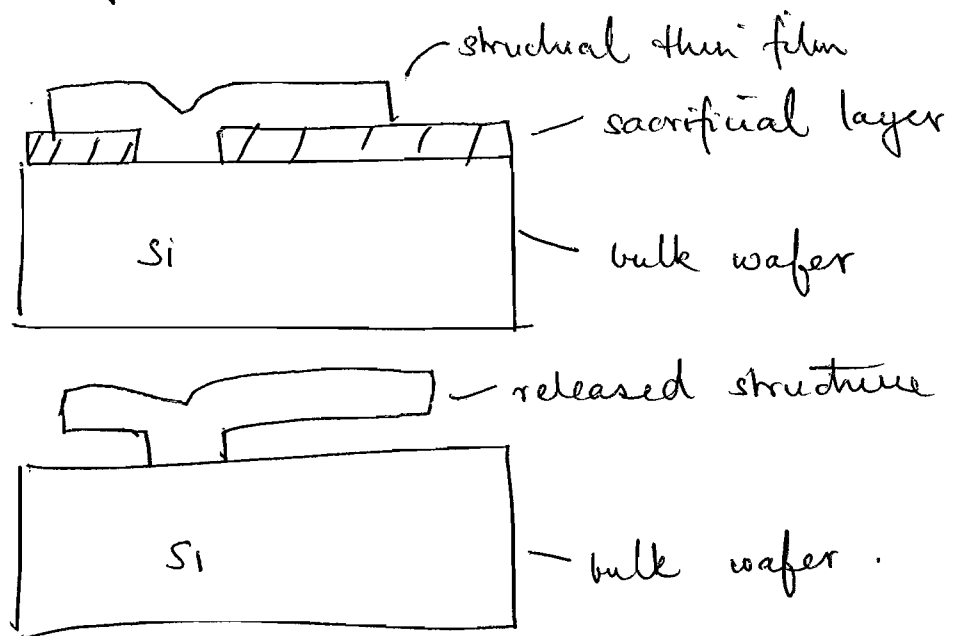 structural thin film
sacrificial layer
Si
bulk wafer
released structure
Si
bulk wafer .